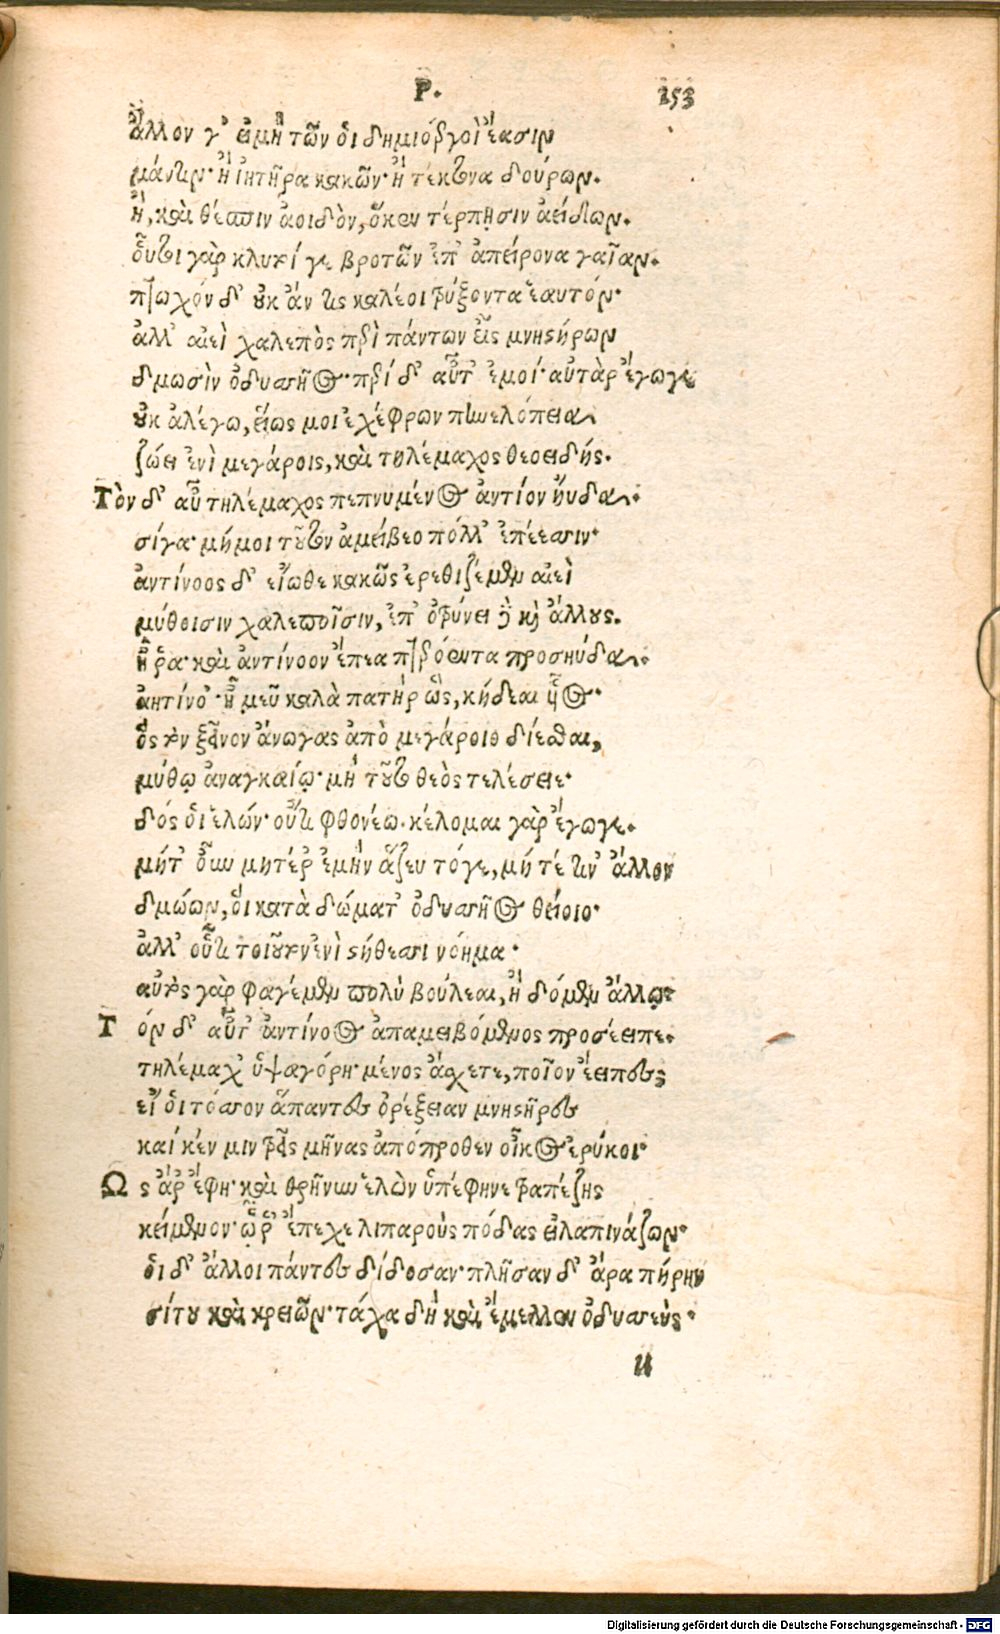 Ρ. 253
ἄλλον γ' εἰ μὴ τῶν οἳ δημιοεργοὶ ἔασιν
μάντιν· ἢ ἰητῆρα κακῶν· ἢ τέκτονα δούρων.
ἢ, καὶ θέσπιν ἀοιδὸν, ὅ κεν τέρπῃσιν ἀείδων.
οὗτοι γὰρ κλητοί γε βροτῶν ἐπ' ἀπείρονα γαῖαν.
πτωχόν δ' οὐκ ἄν τις καλέοι τρύξοντα ἑαυτόν·
ἀλλ' αἰεὶ χαλεπὸς περὶ πάντων εἷς μνηστήρων
δμωσὶν ὀδυσσῆος· περί δ' αὖτ' ἐμοί· αὐτὰρ ἔγωγε
οὐκ ἀλέγω, εἵως μοι ἐχέφρων πηνελόπεια
ζώει ἐνὶ μεγάροις, καὶ τηλέμαχος θεοειδής.
Τὸν δ' αὖ τηλέμαχος πεπνυμένος ἀντίον ηὔδα·
σίγα· μή μοι τοῦτον ἀμείβεο πόλλ' ἐπέεσσιν·
ἀντίνοος δ' εἴωθε κακῶς ἐρεθιζέμεν αἰεὶ
μύθοισιν χαλεποῖσιν, ἐποτρύνει δὲ καὶ ἄλλους.
ἦ ῥα· καὶ ἀντίνοον ἔπεα πτερόεντα προσηύδα·
ἀντίνο'· ἦ μεῦ καλὰ πατὴρ ὣς, κήδεαι υἷος·
ὃς τὸν ξεῖνον ἄνωγας ἀπὸ μεγάροιο δίεσθαι,
μύθῳ ἀναγκαίῳ· μὴ τοῦτο θεὸς τελέσειε·
δός οἱ ἑλών· οὔτι φθονέω· κέλομαι γὰρ ἔγωγε.
μήτ' οὖν μητέρ' ἐμὴν ἅζευ τόγε, μήτέ τιν' ἄλλον
δμώων, οἳ κατὰ δώματ' ὀδυσσῆος θείοιο·
ἀλλ' οὔτι τοιοῦτον ἐνὶ στήθεσσι νόημα·
αὐτὸς γὰρ φαγέμεν πολὺ βούλεαι, ἢ δόμεν ἄλλῳ·
Τόν δ' αὖτ' ἀντίνοος ἀπαμειβόμενος προσέειπε.
τηλέμαχ' ὑψαγόρη· μένος ἄσχετε, ποῖον ἔειπες;
εἴ οἱ τόσσον ἅπαντες ὀρέξειαν μνηστῆρες
καί κέν μιν τρεῖς μῆνας ἀπόπροθεν οἶκος ἐρύκοι·
Ὣς ἄρ' ἔφη· καὶ θρῆνυν ἑλὼν ὑπέφηνε τραπέζης
κείμενον· ᾧ ῥ' ἔπεχε λιπαροὺς πόδας εἰλαπινάζων·
οἱ δ' ἄλλοι πάντες δίδοσαν· πλῆσαν δ' ἄρα πήρην
σίτου καὶ κρειῶν· τάχα δὴ καὶ ἔμελλεν ὀδυσσεὺς·
u
Digitalisierung gefördert durch die Deutsche Forschungsgemeinschaft - DFG